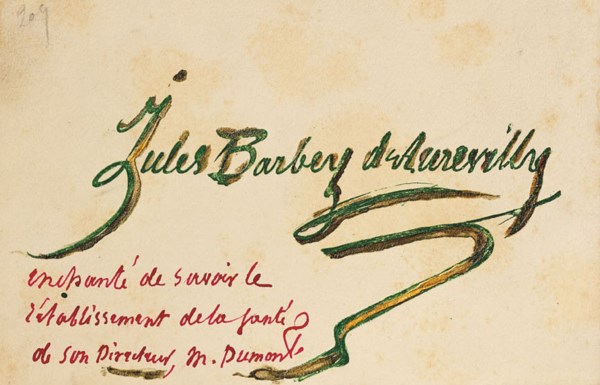 209
Jules Barbey d'Aurevilly
enchanté de savoir le
rétablissement de la santé
de son Directeur, M. Dumont